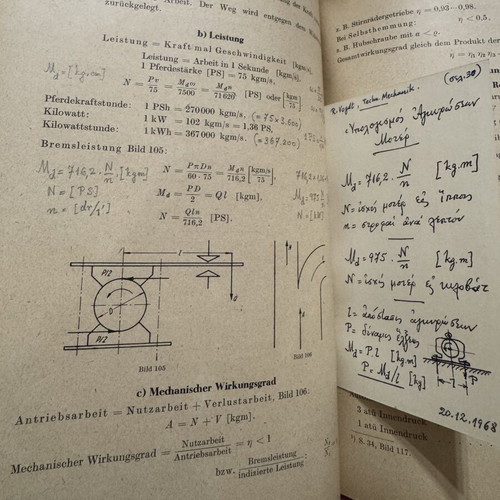 Arbeit. Der Weg wird entgegen dem
zurückgelegt.
b) Leistung
Leistung = Kraft mal Geschwindigkeit [kgm/s].
Leistung = Arbeit in 1 Sekunde [kgm/s].
1 Pferdestärke [PS] = 75 kgm/s.
M_d = [kg.cm]
N = Pv/75 = M_d ω/7500 = M_d n/71620 [PS] oder [kgm/75]
Pferdekraftstunde: 1 PSh = 270000 kgm/s. (=75×3.600)
Kilowatt: 1 kW = 102 kgm/s = 1,36 PS.
Kilowattstunde: 1 kWh = 367000 kgm/s. (=367.200)
Bremsleistung Bild 105:
M_d = 716,2 · N/n · [kgm]
N = [PS]
N = PπDn/60 · 75 = M_d n/716,2 [kgm/s/75],
M_d = PD/2 = Ql [kgm].
N = Qln/716,2 [PS].
l
P/2
D
P/2
Q
Bild 105
Bild 106
c) Mechanischer Wirkungsgrad
Antriebsarbeit = Nutzarbeit + Verlustarbeit, Bild 106:
A = N + V [kgm].
Mechanischer Wirkungsgrad = Nutzarbeit/Antriebsarbeit = η < 1
bzw. Bremsleistung/indizierte Leistung
z. B. Stirnrädergetriebe η = 0,93–0,98.
Bei Selbsthemmung: η < 0,5,
z. B. Hubschraube mit α < ϱ.
Gesamtwirkungsgrad gleich dem Produkt der
(σελ. 30)
Techn. Mechanik.
Ὑπολογισμός Ἀγκυρώσεων
Μοτέρ
M_d = 716,2 · N/n [kg.m]
N = ἰσχύς μοτέρ εἰς ἵππους
n = στροφαί ἀνά λεπτόν
M_d = 975 · N/n [kg.m]
N = ἰσχύς μοτέρ εἰς κιλοβάτ
l = ἀπόστασις ἀγκυρώσεων
P = δύναμις ἕλξεως
M_d = P.l [kg.m]
P = M_d/l [kg]
P
20.12.1968
3 atü Innendruck
1 atü Innendruck
¹) S. 34, Bild 117.